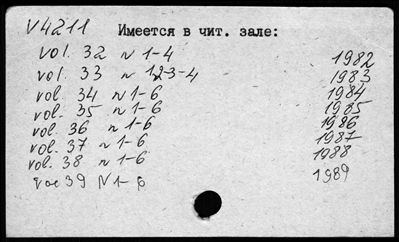 V4211 Имеется в чит. зале:
vol. 32 n 1-4 1982
vol. 33 n 12-3-4 1983
vol. 34 n 1-6 1984
vol. 35 n 1-6 1985
vol. 36 n 1-6 1986
vol. 37 n 1-6 1987
vol. 38 n 1-6 1988
vol 39 N 1-6 1989